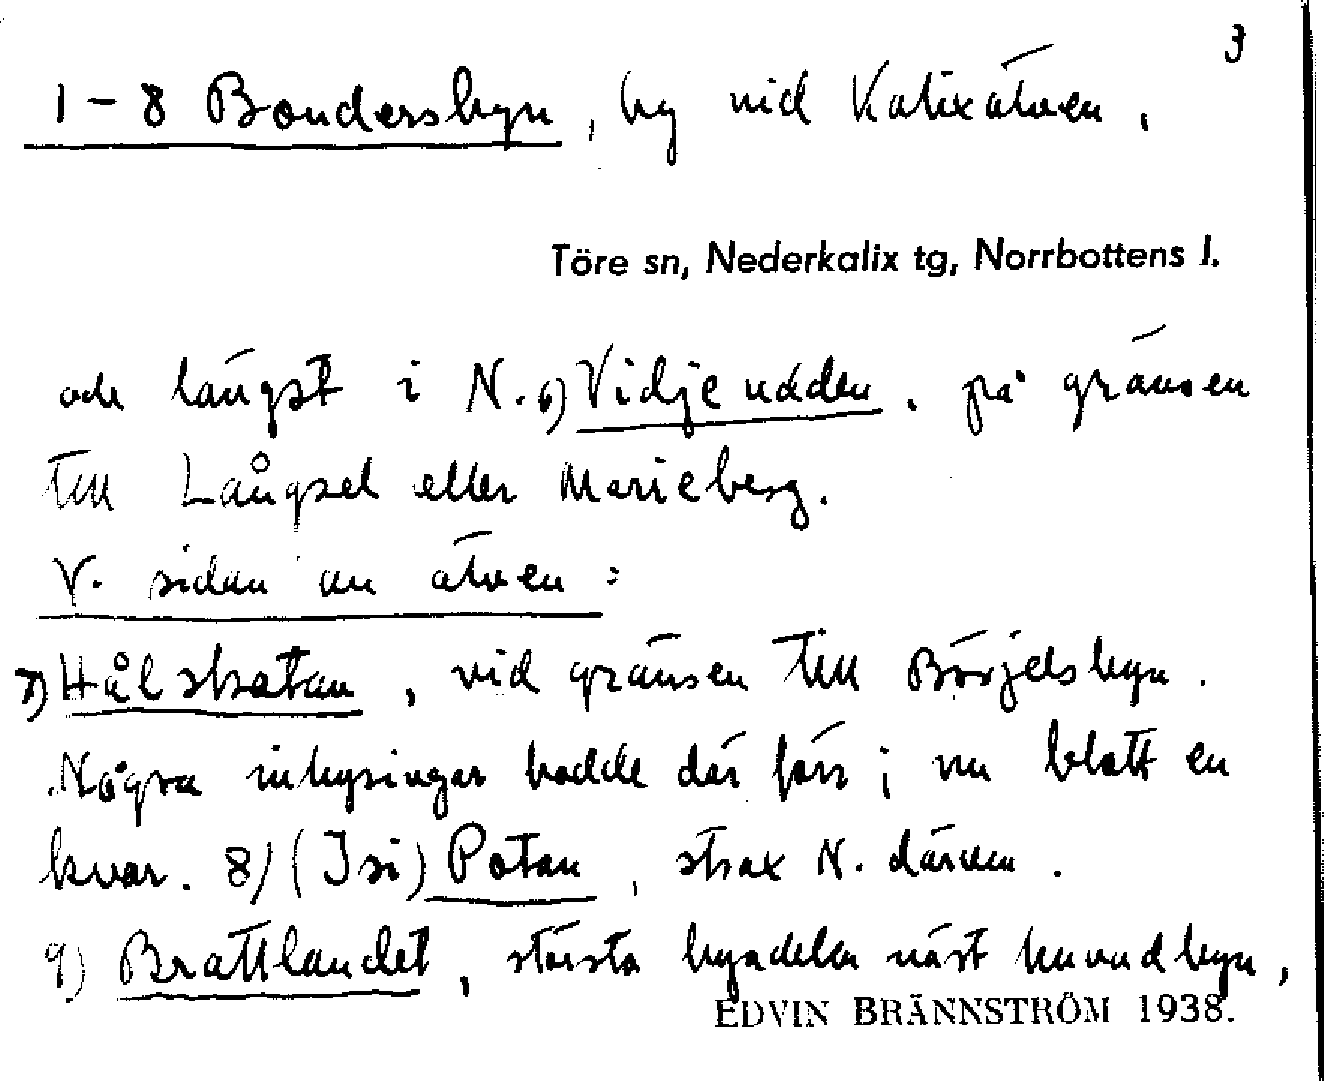 3
1-8 Bondersbyn, by vid Kalixälven.
Töre sn, Nederkalix tg, Norrbottens l.
och längst i N. 6) Vidjeudden, på gränsen
till Långsel eller Marieberg.
V. sidan av älven:
7) Hålskatan, vid gränsen till Börjelsbyn.
Några inhysingar bodde där förr; nu blott en
kvar. 8) (Isi) Potan, strax N. därom.
9) Brattlandet, största bydelen näst huvudbyn,
EDVIN BRÄNNSTRÖM 1938.